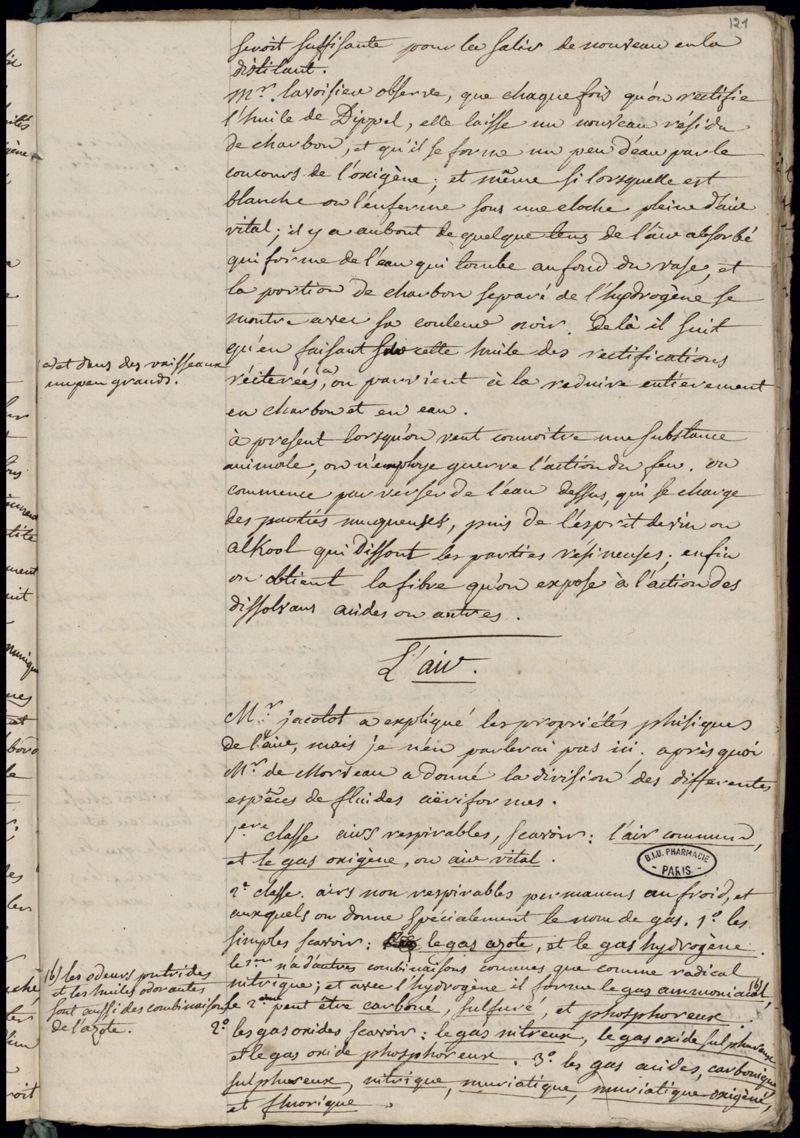 121
seroit suffisante pour les salir de nouveau en la
distilant.
Mr. lavoisier observe, que chaque fois qu'on rectifie
l'huile de Dippel, elle laisse un nouveau résidu
de charbon, et qu'il se forme un peu d'eau par le
concours de l'oxigène; et même si lorsquelle est
blanche on l'enferme sous une cloche pleine d'air
vital; il y a au bout de quelque tems de l'air absorbé
qui forme de l'eau qui tombe au fond du vase, et
la portion de charbon separé de l'hydrogène se
montre avec sa couleur noir. De là il suit
qu'en faisant cette huile des rectifications
réiterées (a), on parvient à la reduire entièrement
en charbon et en eau.
(a) et dans des vaisseaux
un peu grands.
à present lorsqu'on veut connoitre une substance
animale, on n'employe guerre l'action du feu. on
commence par verser de l'eau dessus, qui se charge
des parties muqueuses, puis de l'esprit de vin ou
alKool qui dissout les parties résineuses; enfin
on obtient la fibre qu'on expose à l'action des
dissolvans acides ou autres.
L'air.
Mr. jacotot a expliqué les propriétés phisiques
de l'air, mais je n'en parlerai pas ici. après quoi
Mr. de Morveau a donné la division des differentes
espèces de fluides aëriformes.
1ere classe airs respirables, scavoir: l'air commun,
et le gas oxigène, ou air vital.
B.I.U. PHARMACIE
PARIS
2e classe. airs non respirables permanens au froid, et
auxquels on donne spécialement le nom de gas. 1o. les
simples scavoir: le gas azote, et le gas hydrogène.
le 1er n'a d'autres combinaisons connues que comme radical
nitrique; et avec l'hydrogène il forme le gas ammoniacal (b).
le 2eme peut être carboné, sulfuré, et phosphoreux.
(b) les odeurs putrides
et les huiles odorantes
sont aussi des combinaisons
de l'azote.
2o. les gas oxides scavoir: le gas nitreux, le gas oxide sulphureux
et le gas oxide phosphoreux. 3o. les gas acides, carbonique
sulphureux, nitrique, muriatique, muriatique oxigéné,
et fluorique.